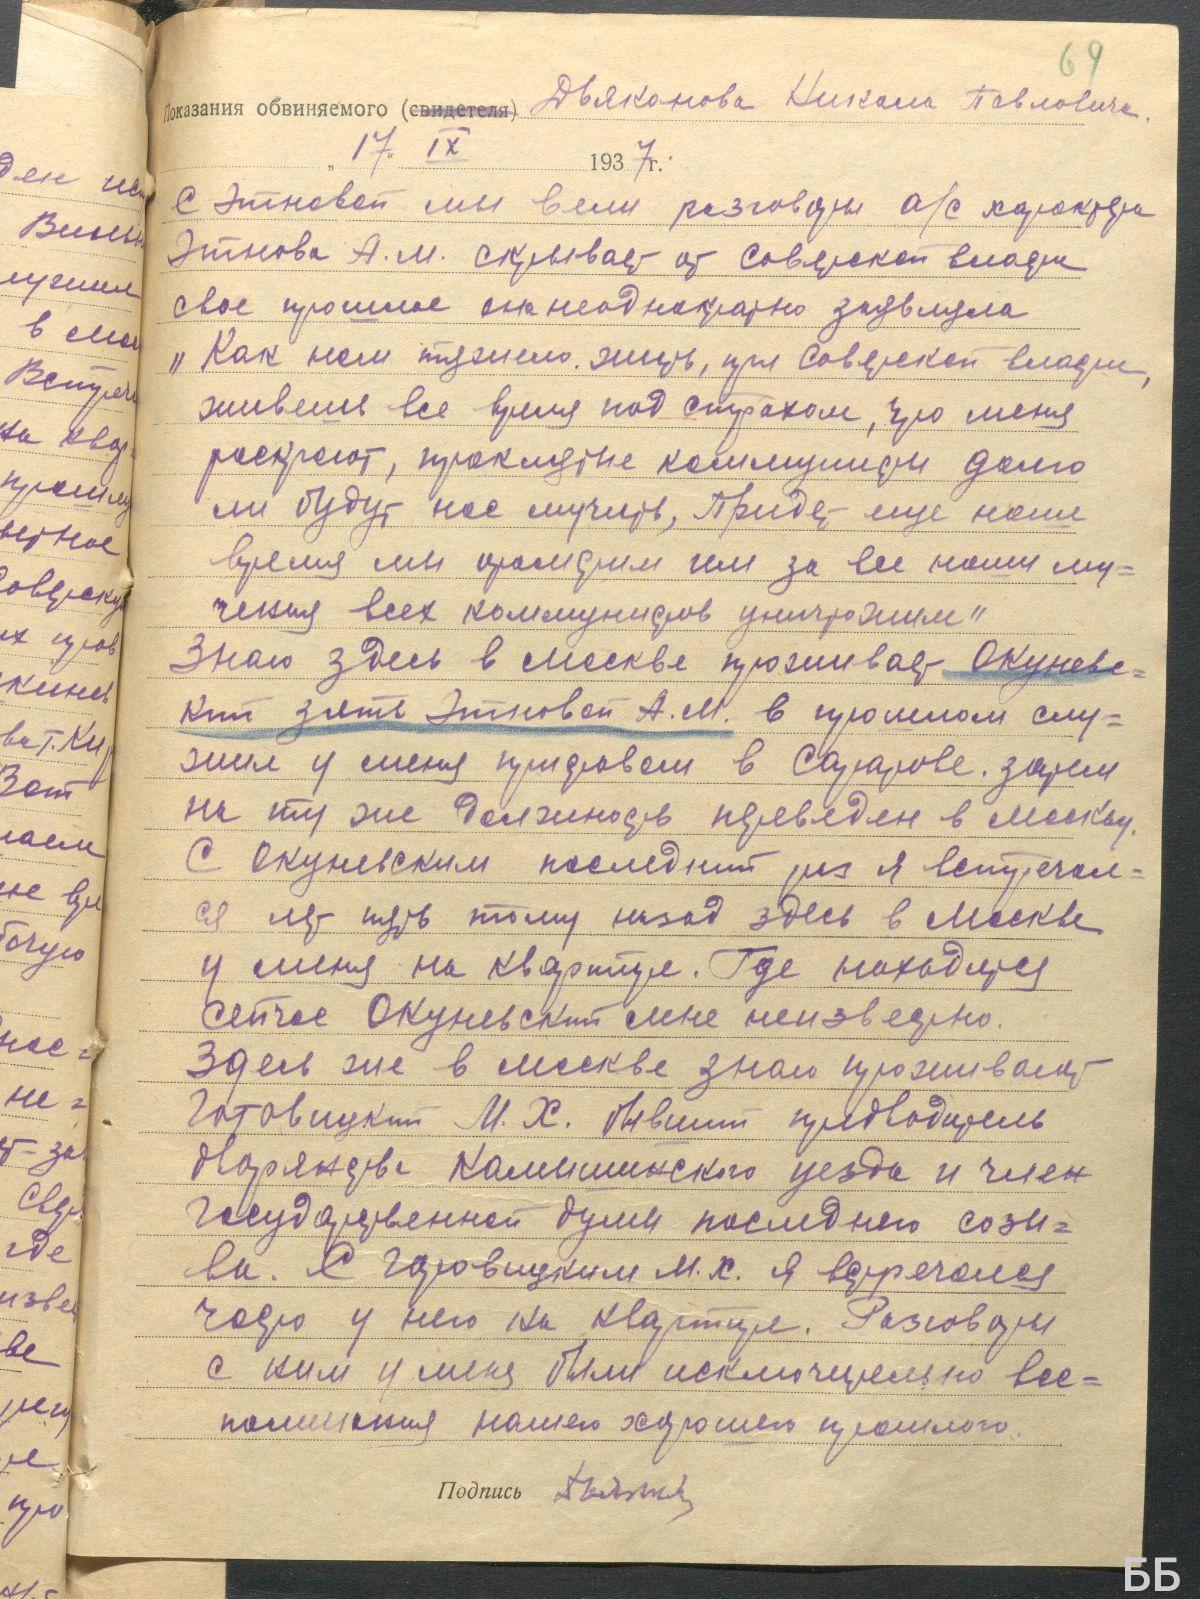 69
Показания обвиняемого (свидетеля) Дьяконова Николая Павловича.
„17" IX 1937 г.
С Этновой мы вели разговоры а/с характера
Этнова А.М. скрывает от Советской власти
свое прошлое она неоднократно заявляла
„Как нам тяжело жить, при Советской власти,
живешь все время под страхом, что меня
раскроют, проклятые коммунисты долго
ли будут нас мучить, Придет еще наше
время мы отомстим им за все наши му=
чения всех коммунистов уничтожим"
Знаю здесь в Москве проживает Окуневс=
кий зять Этновой А.М. в прошлом слу=
жил у меня приставом в Саратове. затем
на ту же должность переведен в Москву.
С Окуневским последний раз я встречал=
ся лет пять тому назад здесь в Москве
у меня на квартире. Где находится
сейчас Окуневский мне неизвестно.
Здесь же в Москве знаю проживает
Готовицкий М.Х. бывший предводитель
дворянства Камышинского уезда и член
Государственной думы последнего созы=
ва. С Готовицким М.Х. я встречался
часто у него на квартире. Разговоры
с ним у меня были исключительно вос=
поминания нашего хорошего прошлого.
Подпись
ББ